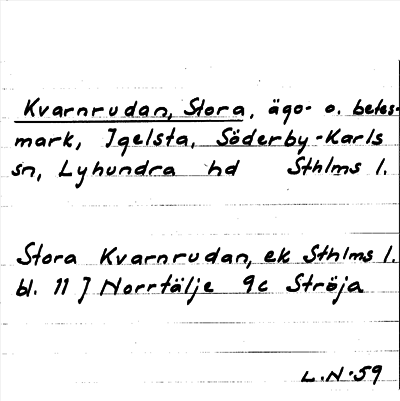 Kvarnrudan, Stora, ägo- o. betes-
mark, Igelsta, Söderby-Karls
sn, Lyhundra hd Sthlms l.
Stora Kvarnrudan, ek Sthlms l.
bl. 11 J Norrtälje 9c Ströja
L.N.59